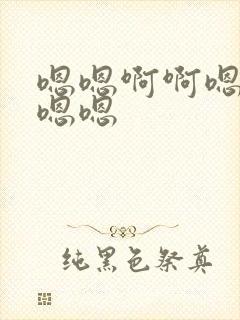 嗯嗯啊啊嗯
嗯嗯
纯黑色祭奠